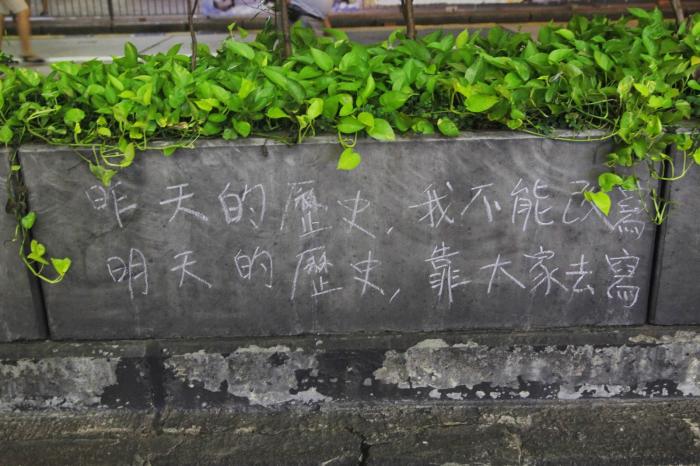 昨天的歷史,我不能改寫
明天的歷史,靠大家去寫